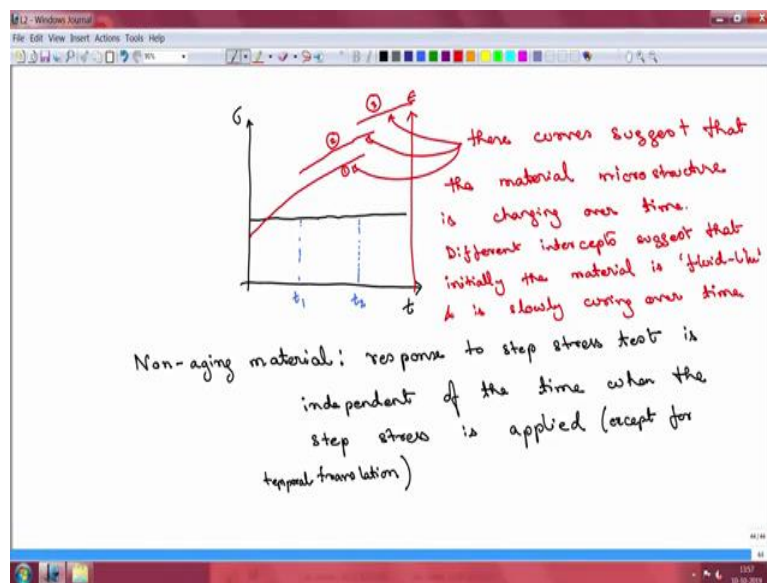 L2 - Windows Journal
File Edit View Insert Actions Tools Help
σ
① ② ③ ε
t₁ t₂ t
these curves suggest that
the material microstructure
is changing over time.
Different intercepts suggest that
initially the material is 'fluid-like'
& is slowly curing over time
Non-aging material: response to step stress test is
independent of the time when the
step stress is applied (except for
temporal translation)
44/44
44
13:57